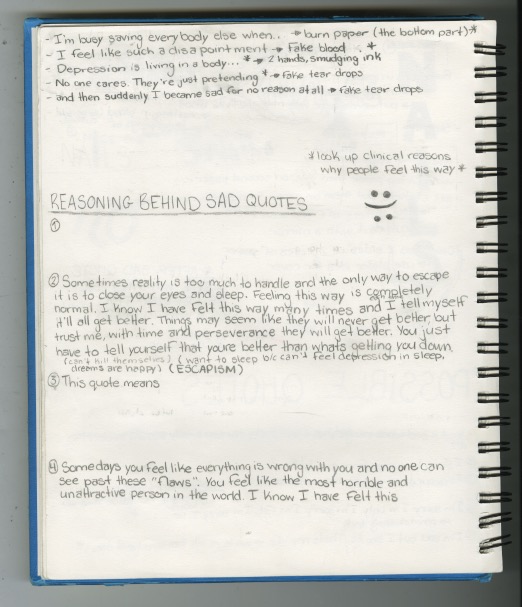 - I'm busy saving everybody else when.. → burn paper (the bottom part)*
- I feel like such a disapointment → Fake blood *
- Depression is living in a body... *→ 2 hands, smudging ink
- No one cares. They're just pretending *→ fake tear drops
- and then suddenly I became sad for no reason at all → fake tear drops
*look up clinical reasons
why people feel this way *
REASONING BEHIND SAD QUOTES
①
② Sometimes reality is too much to handle and the only way to escape
it is to close your eyes and sleep. Feeling this way is completely
normal. I know I have felt this way many times and I tell myself
it'll all get better. Things may seem like they will never get better, but
trust me, with time and perseverance they will get better. You just
have to tell yourself that youre better than whats getting you down.
(can't kill themselves) (want to sleep b/c can't feel depression in sleep,
dreams are happy) (ESCAPISM)
③ This quote means
④ Somedays you feel like everything is wrong with you and no one can
see past these "flaws". You feel like the most horrible and
unattractive person in the world. I know I have felt this